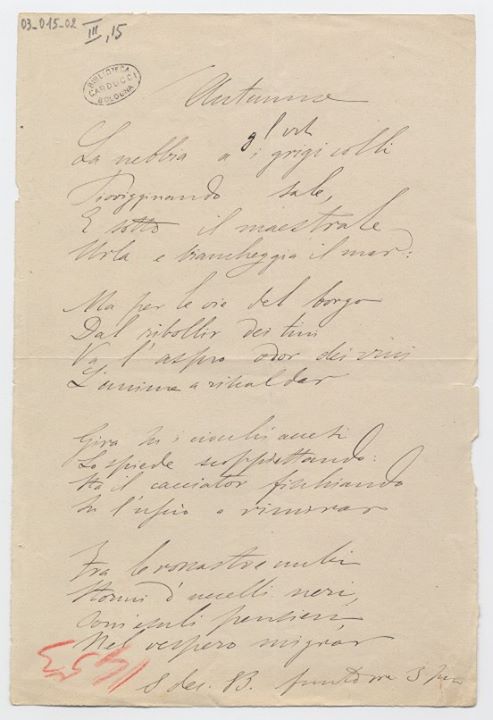 03_015_02
III, 15
BIBLIOTECA
CARDUCCI
BOLOGNA
Autunno
gl'irti
La nebbia a i grigi colli
Piovigginando sale,
E sotto il maestrale
Urla e biancheggia il mar:
Ma per le vie del borgo
Dal ribollir dei tini
Va l'aspro odor dei vini
L'anime a riscaldar
Gira su i ciocchi accesi
Lo spiede scoppiettando:
Sta il cacciator fischiando
Su l'uscio a rimirar
Fra le rossastre nubi
Stormi d'uccelli neri,
Com'esuli pensieri,
Nel vespero migrar
8 dec. ore 3